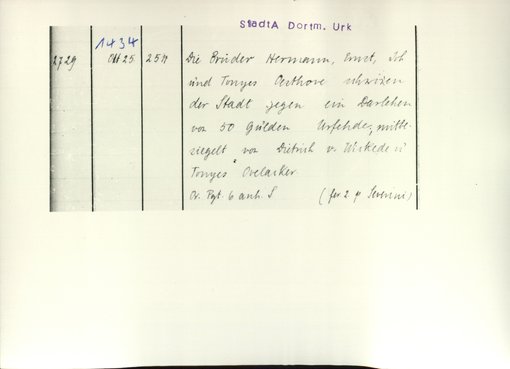 StadtA Dortm. Urk
1434
2729 Okt 25 25n Die Brüder Hermann, Ernst, Joh
und Tonyes Overhove schwören
der Stadt gegen ein Darlehen
von 50 Gulden Urfehde, mitbe-
siegelt von Dietrich v. Wickede u
Tonyes Ovelacker
Or. Pgt. 6 anh. S (fer. 2 p Severini)